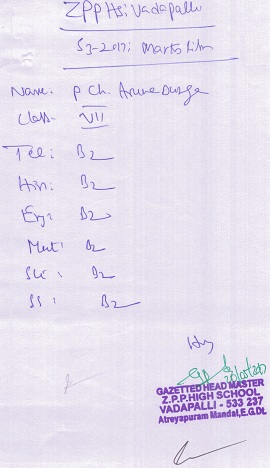 ZPPHS: Vadapalli
S3-2017: Marks
Name: P Ch. Aruna Durga
Class: VII
Tel: B2
Hin: B2
Eng: B2
Mat: B2
Sci: B2
SS: B2
GAZETTED HEAD MASTER
Z.P.P.HIGH SCHOOL
VADAPALLI - 533 237
Atreyapuram Mandal,E.G.Dt.